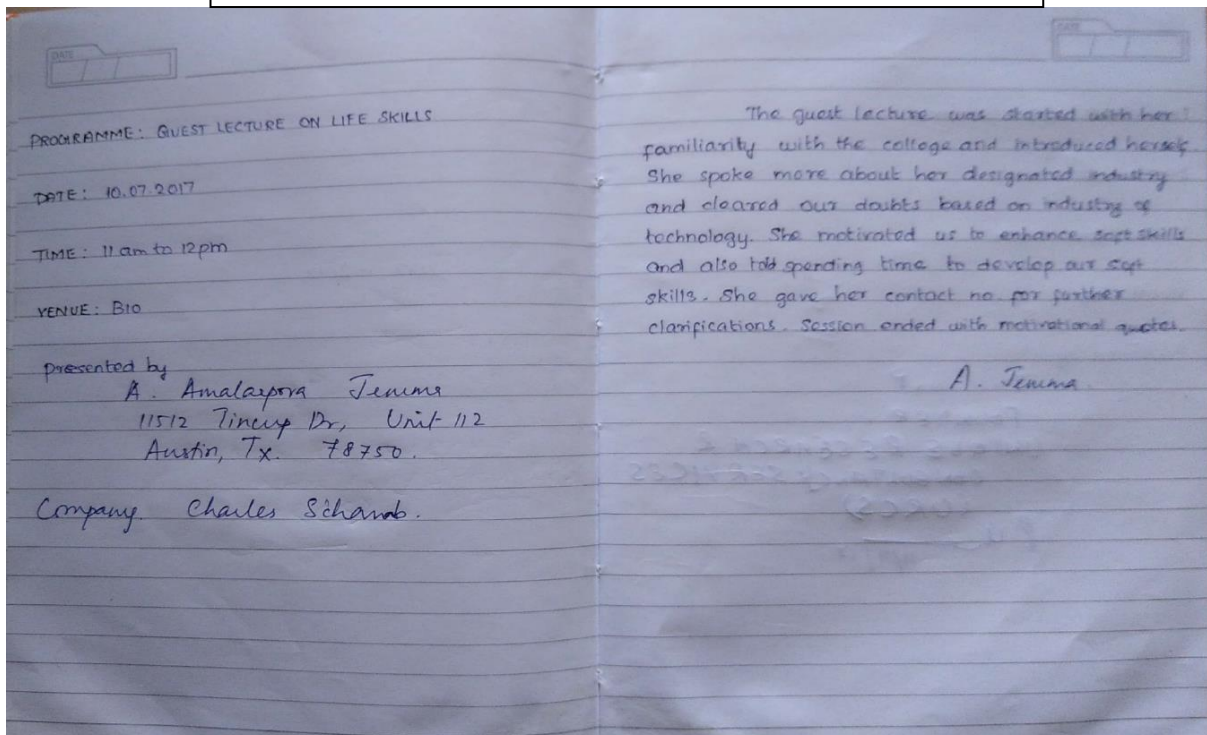 DATE
PROGRAMME: GUEST LECTURE ON LIFE SKILLS
DATE: 10.07.2017
TIME: 11 am to 12pm
VENUE: B10
presented by
A. Jemima
11512 Dr, Unit 112
Austin, Tx. 78750.
Company. Charles
DATE
The guest lecture was started with her
familiarity with the college and introduced herself.
She spoke more about her designated industry
and cleared our doubts based on industry of
technology. She motivated us to enhance soft skills
and also told spending time to develop our soft
skills. She gave her contact no. for further
clarifications. Session ended with motivational quotes.
A.